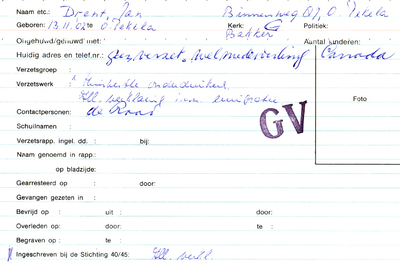 Naam etc.: Drent, Jan Binnenweg 87, O. Pekela
Geboren: 13.11.02 te O Pekela Kerk: G Politiek:
Bakker
Ongehuwd/gehuwd met: Aantal kinderen:
Huidig adres en telef.nr.: geg. verzet. wel medewerking Canada
Verzetsgroep :
Verzetswerk : onderduikers
Ill. verklaring i.v.m. emigratie
Contactpersonen: de Raad
Schuilnaam :
GV
Foto
Verzetsrapp. ingel. dd. : bij:
Naam genoemd in rapp.:
op bladzijde:
Gearresteerd op : door:
Gevangen gezeten in :
Bevrijd op : uit : door:
Overleden op: door: te :
Begraven op : te :
Ingeschreven bij de Stichting 40/45: Ill. verkl.